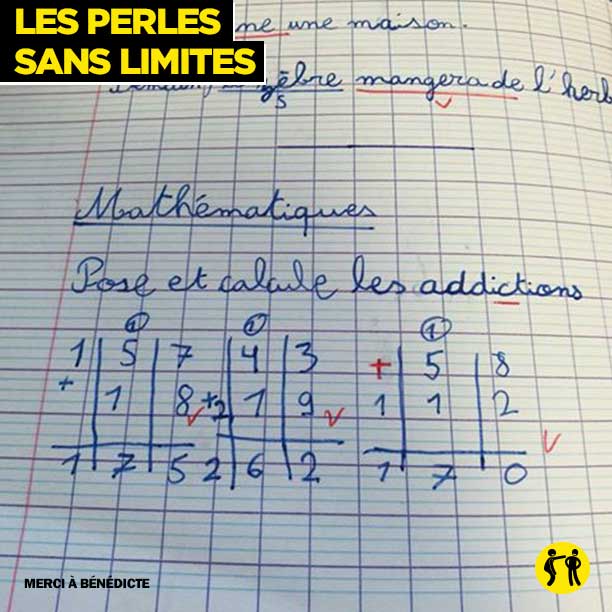 LES PERLES
SANS LIMITES
une maison.
zèbre mangera de l'herb
s
Mathématiques
Pose et calcule les addictions
① ① ①
1 5 7 4 3 + 5 8
+ 1 8 +2 1 9 1 1 2
1 7 5 2 6 2 1 7 0
MERCI À BÉNÉDICTE